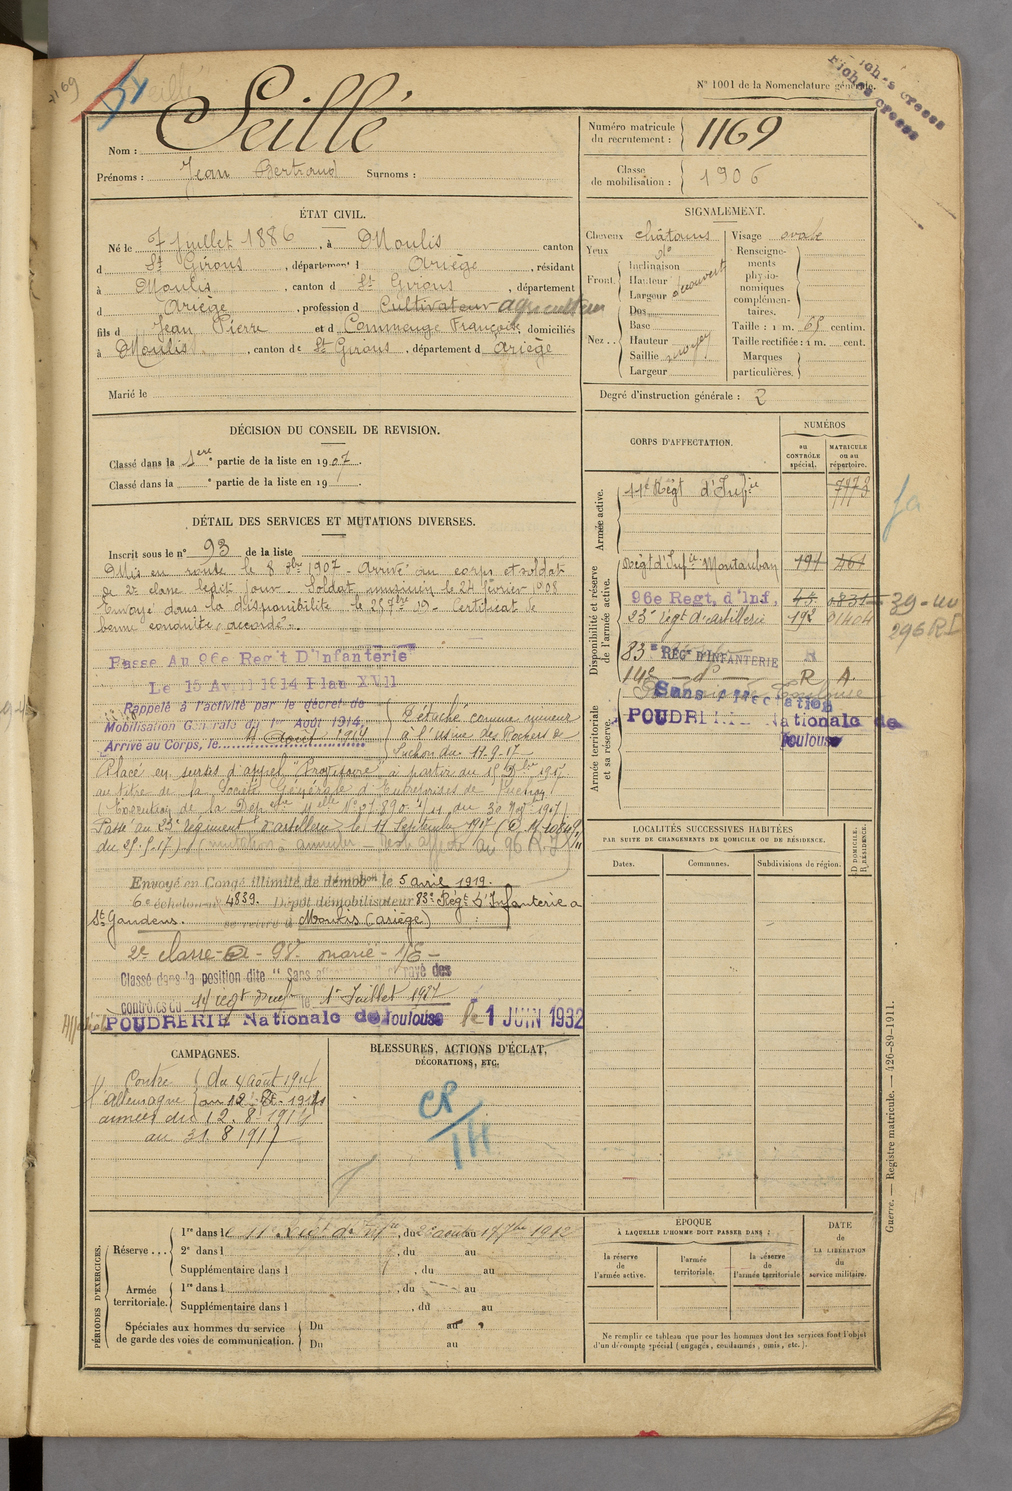 N° 1001 de la Nomenclature générale.
Fiches
1169
Seillé
Nom :
Prénoms : Jean Bertrand Surnoms :
Numéro matricule du recrutement : 1169
Classe de mobilisation : 1906
ÉTAT CIVIL.
Né le 7 Juillet 1886, à Moulis canton
d St Girons, département d Ariège, résidant
à Moulis, canton d St Girons, département
d Ariège, profession d Cultivateur agriculteur
fils d Jean Pierre et d Commenge Françoise, domiciliés
à Moulis, canton de St Girons, département d Ariège
Marié le
SIGNALEMENT.
Cheveux châtains
Yeux do
Front. Inclinaison
Hauteur
Largeur découvert
Nez . . Dos
Base
Hauteur
Saillie moyen
Largeur
Visage ovale
Renseignements physionomiques complémentaires.
Taille : 1 m. 65 centim.
Taille rectifiée : 1 m. cent.
Marques particulières.
Degré d'instruction générale : 2
DÉCISION DU CONSEIL DE REVISION.
Classé dans la 1ere partie de la liste en 1907.
Classé dans la ° partie de la liste en 19 .
DÉTAIL DES SERVICES ET MUTATIONS DIVERSES.
Inscrit sous le n° 93 de la liste
Mis en route le 8 8bre 1907 - Arrivé au corps et soldat
de 2e classe ledit jour. Soldat musicien le 24 février 1908
Envoyé dans la disponibilité le 25 7bre 19 - Certificat de
bonne conduite accordé.
Passe Au 96e Reg't D'Infanterie
Le 15 Avril 1914 Plan XVII
Rappelé à l'activité par le décret de
Mobilisation Générale du 1er Août 1914,
Arrivé au Corps, le 4 Août 1914
Détaché comme mineur
à l'usine des Rochers de
Luchon du 11.9.17
Placé en sursis d'appel "Provisoire" à partir du
au titre de la Société Générale d'Entreprises de Luchon
Passé au 23e régiment d'artillerie le 11 Septembre 1917
du 25.5.17) (mutation à annuler reste affecté au 96 R.I)
Envoyé en Congé illimité de démobon le 5 avril 1919.
6e échelon n° 4839. Dépôt démobilisateur 83e Régt d'Infanterie a
St Gaudens. se retire à Moulis (ariège)
2e classe - 98 - marié - 1E -
Classé dans la position dite "Sans affectation" et rayé des
contrôles du 14e régt d'inf le 1er Juillet 1927
Affecté POUDRERIE Nationale de Toulouse le 1 JUIN 1932
CORPS D'AFFECTATION.
NUMÉROS
au CONTRÔLE spécial.
MATRICULE ou au répertoire.
Armée active.
11e Régt d'Infie 7973
Disponibilité et réserve de l'armée active.
Régt d'Infie Montauban 191 461
96e Regt, d'Inf, 43
23e régt d'artillerie 192 01404
83e REGt D'INFANTERIE R
14e — do — R A.
Armée territoriale et sa réserve.
Sans affectation
POUDRERIE Nationale de
Toulouse
296 RI
LOCALITÉS SUCCESSIVES HABITÉES
PAR SUITE DE CHANGEMENTS DE DOMICILE OU DE RÉSIDENCE.
Dates.
Communes.
Subdivisions de région.
D DOMICILE.
R RÉSIDENCE.
CAMPAGNES.
Contre l'Allemagne
du 4 août 1914
armées du 12.8.1914
au 31.8.1917
BLESSURES, ACTIONS D'ÉCLAT,
DÉCORATIONS, ETC.
PÉRIODES D'EXERCICES.
Réserve . . . 1re dans le 11e Régt d'Infie, du au 17 7bre 1912
2e dans l , du au
Supplémentaire dans l , du au
Armée territoriale. 1re dans l , du au
Supplémentaire dans l , du au
Spéciales aux hommes du service de garde des voies de communication. Du au
Du au
ÉPOQUE
À LAQUELLE L'HOMME DOIT PASSER DANS :
la réserve de l'armée active.
l'armée territoriale.
la réserve de l'armée territoriale
DATE de LA LIBÉRATION du service militaire.
Ne remplir ce tableau que pour les hommes dont les services font l'objet
d'un décompte spécial (engagés, condamnés, omis, etc.).
Guerre. — Registre matricule. — 426-89-1911.